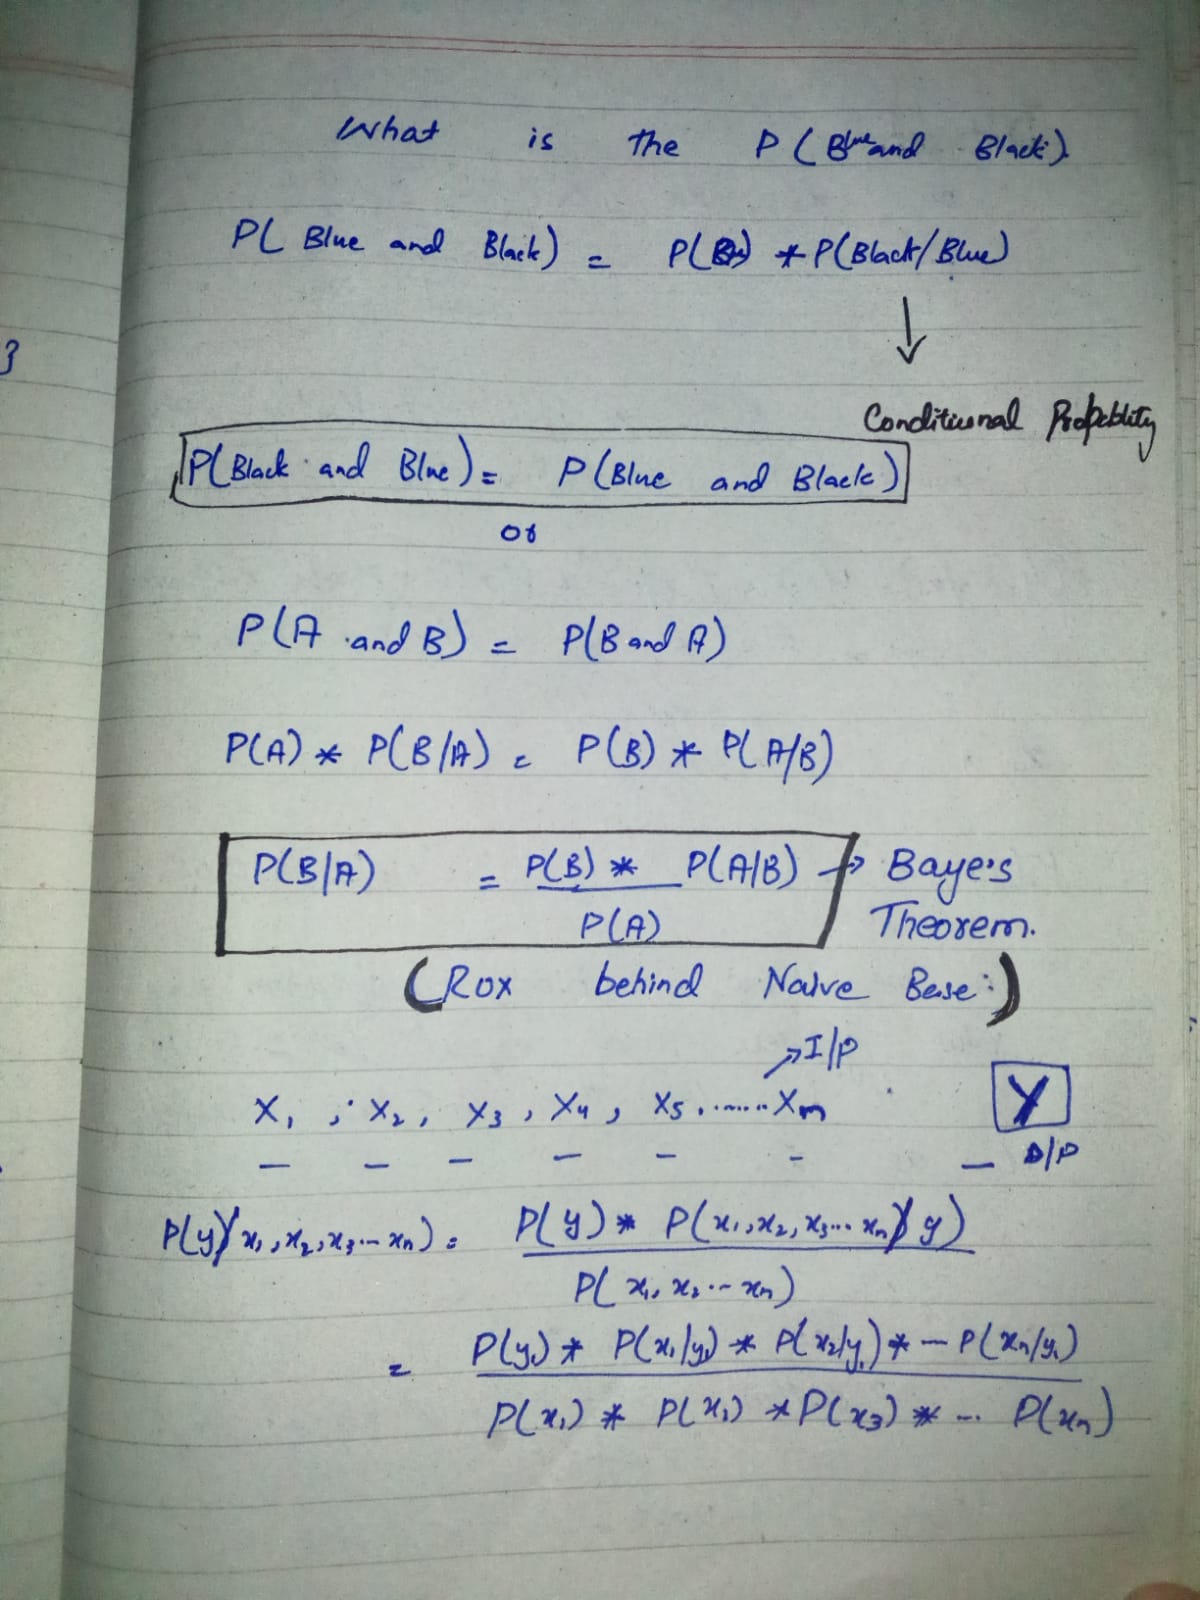 What is the P ( Blue and Black )
P( Blue and Black ) = P( ) * P(Black/Blue)
↓
Conditional Propeblity
P(Black and Blue) = P(Blue and Black)
or
P(A and B) = P(B and A)
P(A) * P(B/A) = P(B) * P(A/B)
P(B/A) = P(B) * P(A/B) → Baye's
P(A) Theorem.
(Rox behind Naive Base :)
→ I/P
X1 , X2 , X3 , X4 , X5 , ...... Xn Y
— — — — — - — O/P
P(y/x1, x2, x3 ... xn) = P(y) * P(x1, x2, x3 ... xn/y)
P(x1, x2 ... xn)
= P(y1) * P(x1/y1) * P(x2/y1) * -- P(xn/y1)
P(x1) * P(x2) * P(x3) * -- P(xn)